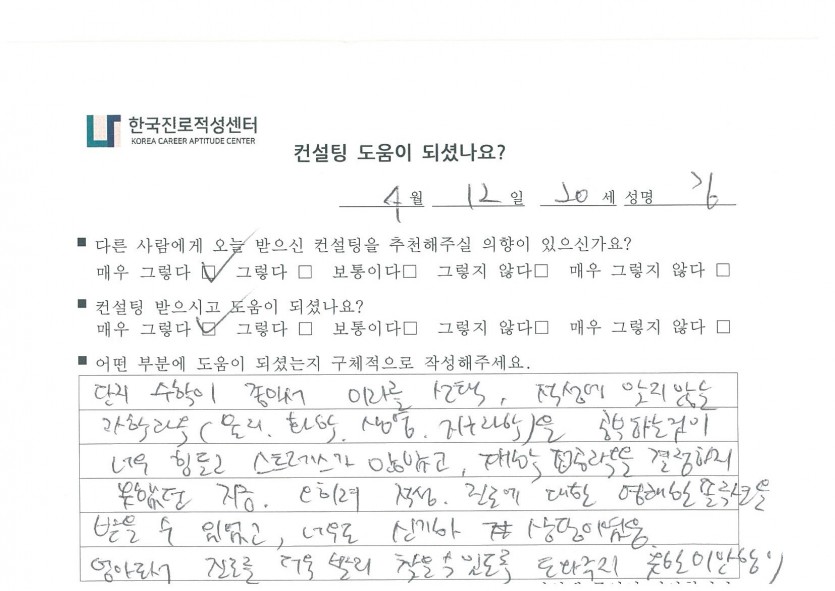 한국진로적성센터
KOREA CAREER APTITUDE CENTER
컨설팅 도움이 되셨나요?
4 월 12 일 20 세 성명
■ 다른 사람에게 오늘 받으신 컨설팅을 추천해주실 의향이 있으신가요?
매우 그렇다 ☑ 그렇다 □ 보통이다□ 그렇지 않다□ 매우 그렇지 않다 □
■ 컨설팅 받으시고 도움이 되셨나요?
매우 그렇다 ☑ 그렇다 □ 보통이다□ 그렇지 않다□ 매우 그렇지 않다 □
■ 어떤 부분에 도움이 되셨는지 구체적으로 작성해주세요.
단지 수학이 좋아서 이과를 선택, 적성에 맞지않는
과학과목(물리. 화학. 생물. 지구과학)을 공부하는것이
너무 힘들고 스트레스가 많았고, 대학 결정하지
못했던 지금. 오히려 적성. 진로에 대한 명쾌한 을
받을 수 있었고, 너무도 신기한 상담이었음
엄마로서 진로를 더욱 빨리 찾을수있도록 도와주지 못한 미안함이